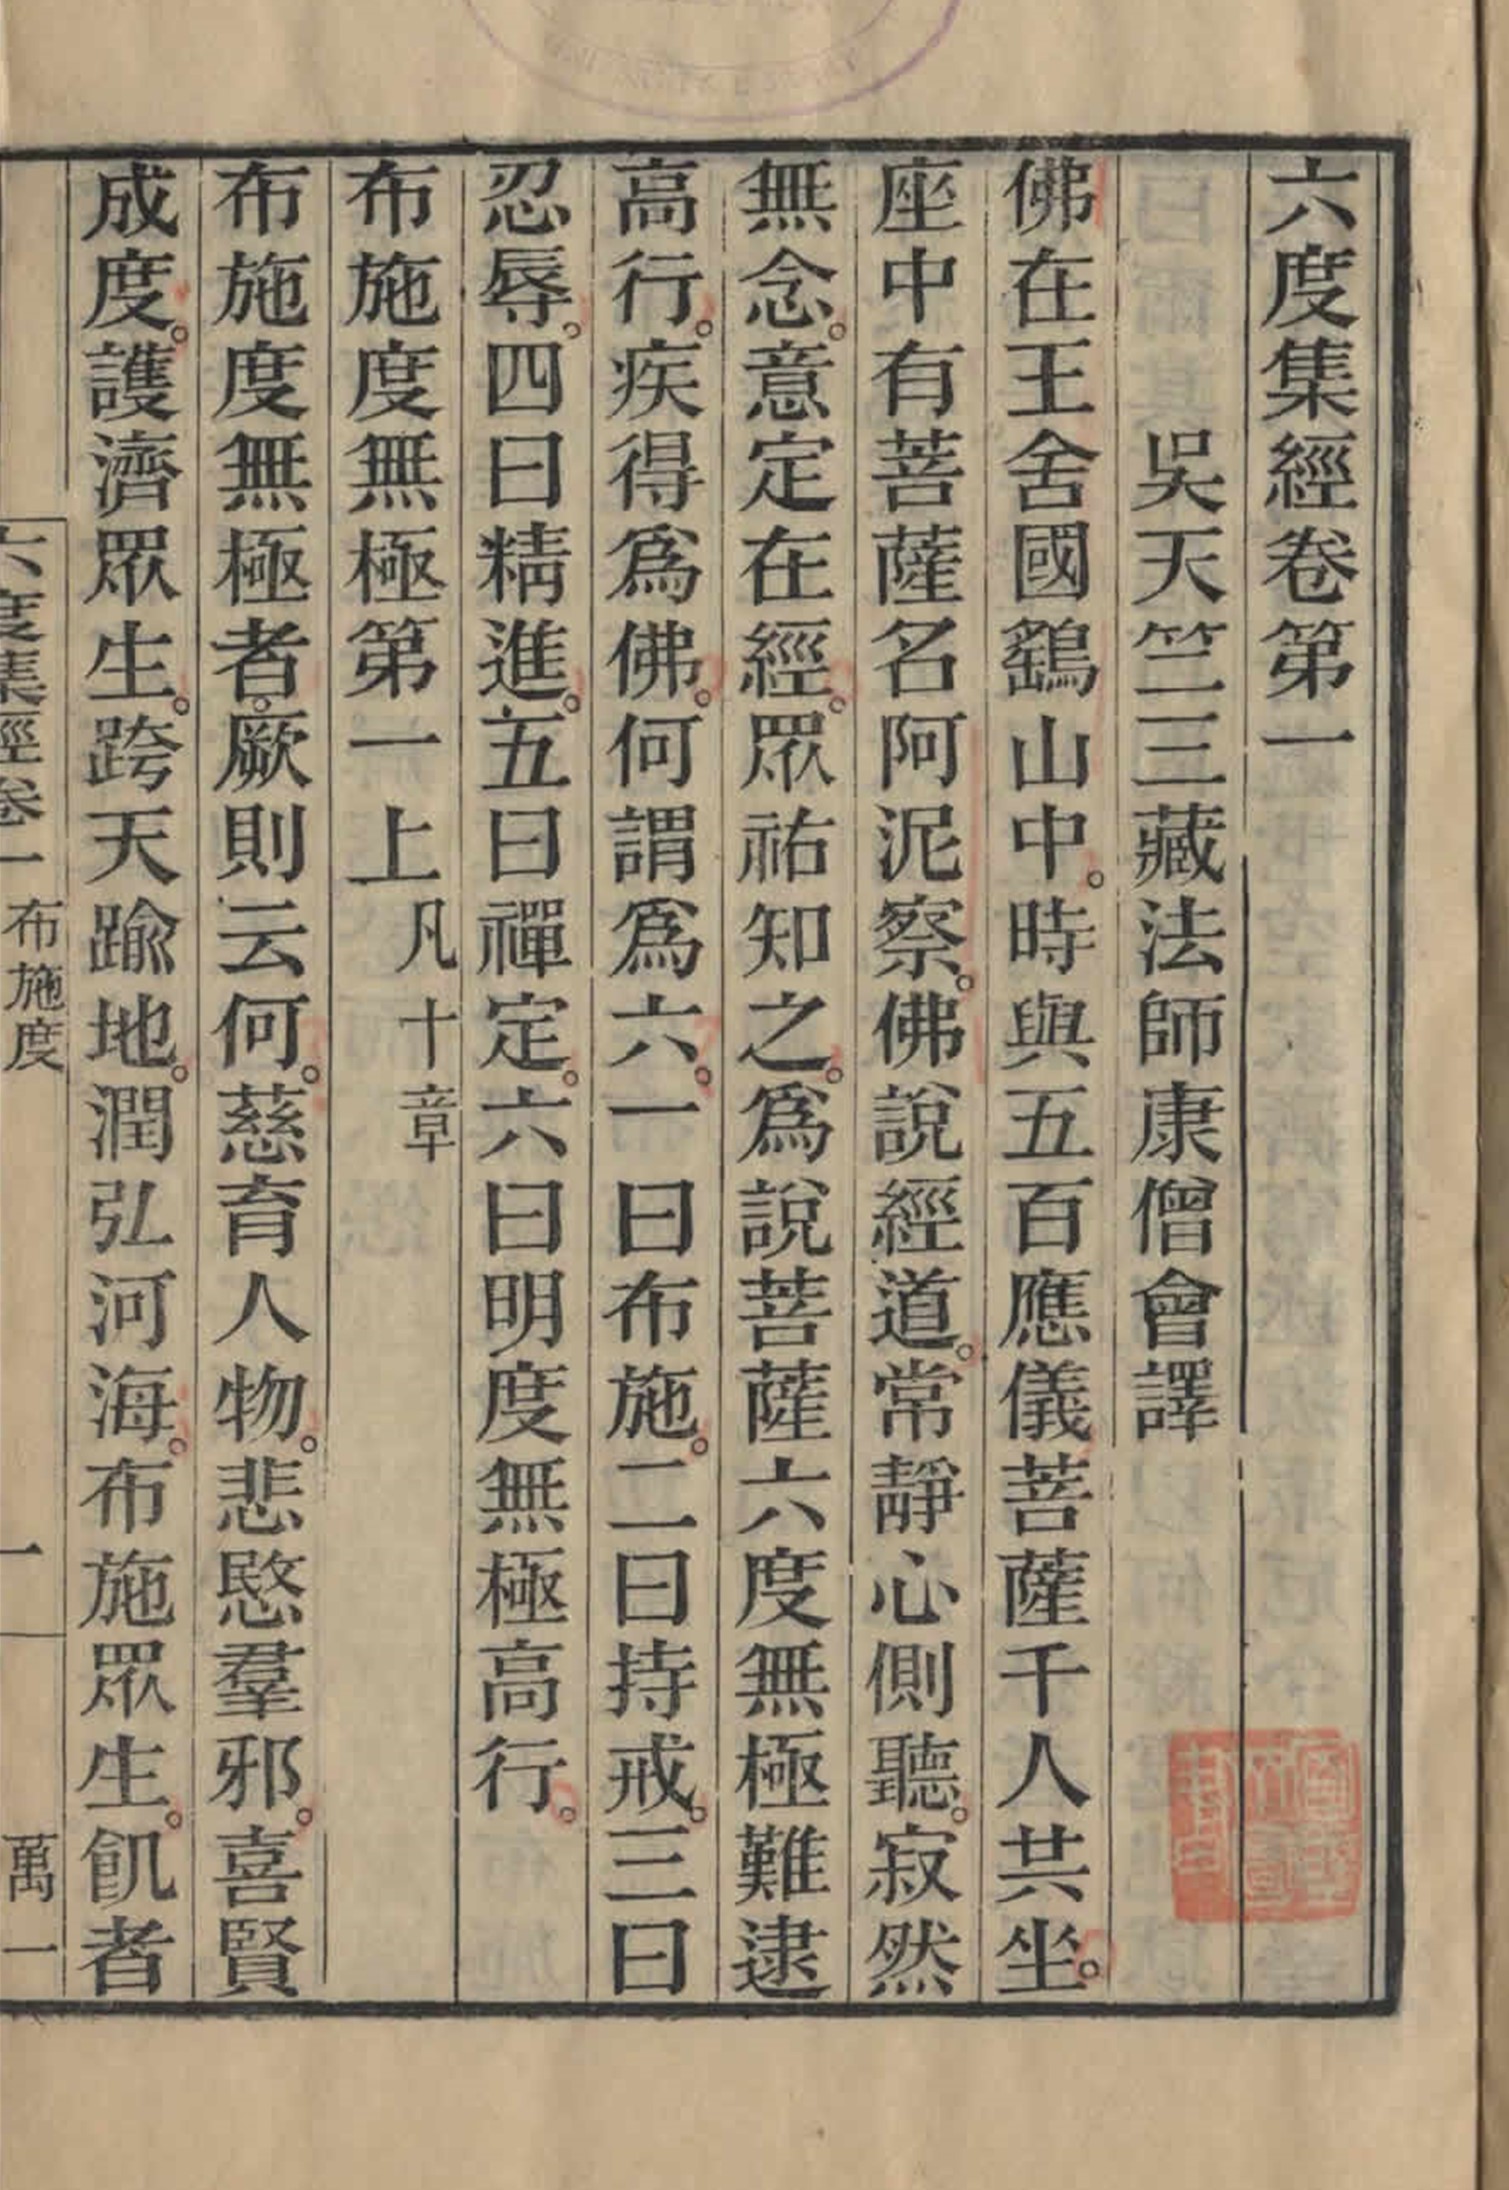 六度集經卷第一
吳天竺三藏法師康僧會譯
佛在王舍國鷂山中。時與五百應儀菩薩千人共坐。
座中有菩薩名阿泥察。佛說經道。常靜心側聽。寂然
無念。意定在經。眾祐知之。為說菩薩六度無極難逮
高行。疾得為佛。何謂為六。一曰布施。二曰持戒。三曰
忍辱。四曰精進。五曰禪定。六曰明度無極高行。
布施度無極第一上凡十章
布施度無極者。厥則云何。慈育人物。悲愍羣邪。喜賢
成度。護濟眾生。跨天踰地。潤弘河海。布施眾生。飢者
六度集經卷一 布施度 一 萬一